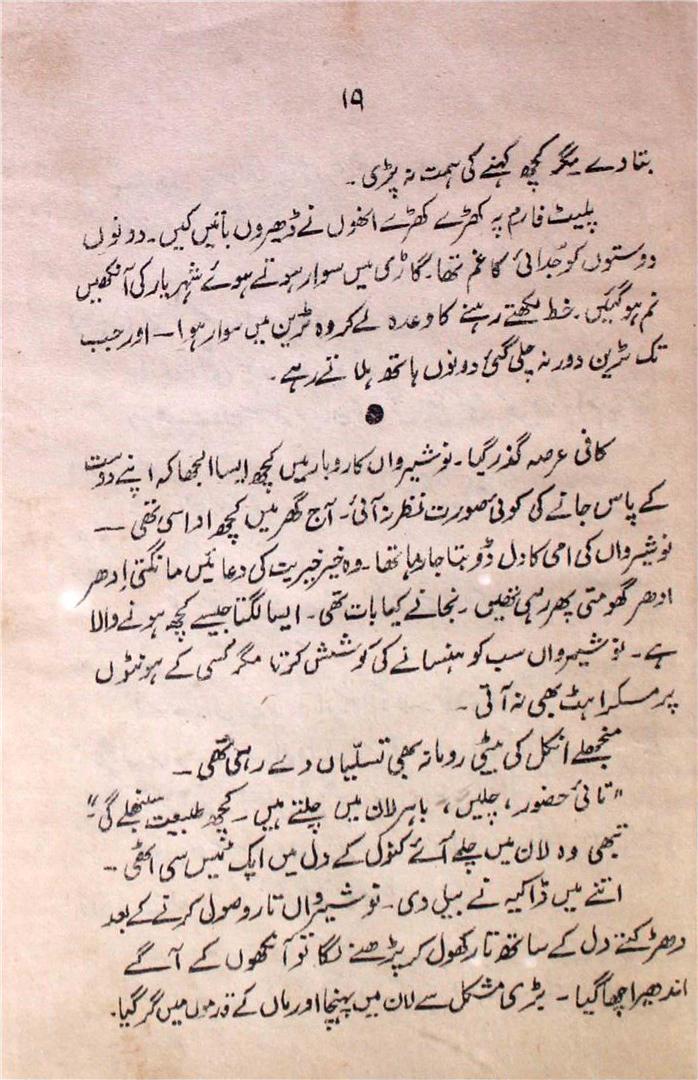 ۱۹
بتا دے مگر کچھ کہنے کی ہمت نہ پڑی۔
پلیٹ فارم پہ کھڑے کھڑے انھوں نے ڈھیروں باتیں کیں۔ دونوں
دوستوں کو جُدائی کا غم تھا۔ گاڑی میں سوار ہوتے ہوئے شہریار کی آنکھیں
نم ہو گئیں۔ خط لکھتے رہنے کا وعدہ لے کر وہ ٹرین میں سوار ہوا — اور جب
تک ٹرین دور نہ چلی گئی دونوں ہاتھ ہلاتے رہے۔
کافی عرصہ گذر گیا۔ نوشیرواں کاروبار میں کچھ ایسا الجھا کہ اپنے دوست
کے پاس جانے کی کوئی صورت نظر نہ آئی۔ آج گھر میں کچھ اداسی تھی —
نوشیرواں کی امی کا دل ڈوبتا جا رہا تھا۔ وہ خیر خیریت کی دعائیں مانگتی اِدھر
ادھر گھومتی پھر رہی تھیں۔ نجانے کیا بات تھی۔ ایسا لگتا جیسے کچھ ہونے والا
ہے۔ نوشیرواں سب کو ہنسانے کی کوشش کرتا مگر کسی کے ہونٹوں
پر مسکراہٹ بھی نہ آتی۔
منجھلے انکل کی بیٹی رومانہ بھی تسلّیاں دے رہی تھی۔
"تائی حضور، چلیں، باہر لان میں چلتے ہیں۔ کچھ طبیعت سنبھلے گی"
تبھی وہ لان میں چلے آئے کنول کے دل میں ایک ٹیس سی اٹھی۔
اتنے میں ڈاکیہ نے بیل دی۔ نوشیرواں تار وصول کرنے کے بعد
دھڑکتے دل کے ساتھ تار کھول کر پڑھنے لگا تو آنکھوں کے آگے
اندھیرا چھا گیا۔ بڑی مشکل سے لان میں پہنچا اور ماں کے قدموں میں گر گیا۔